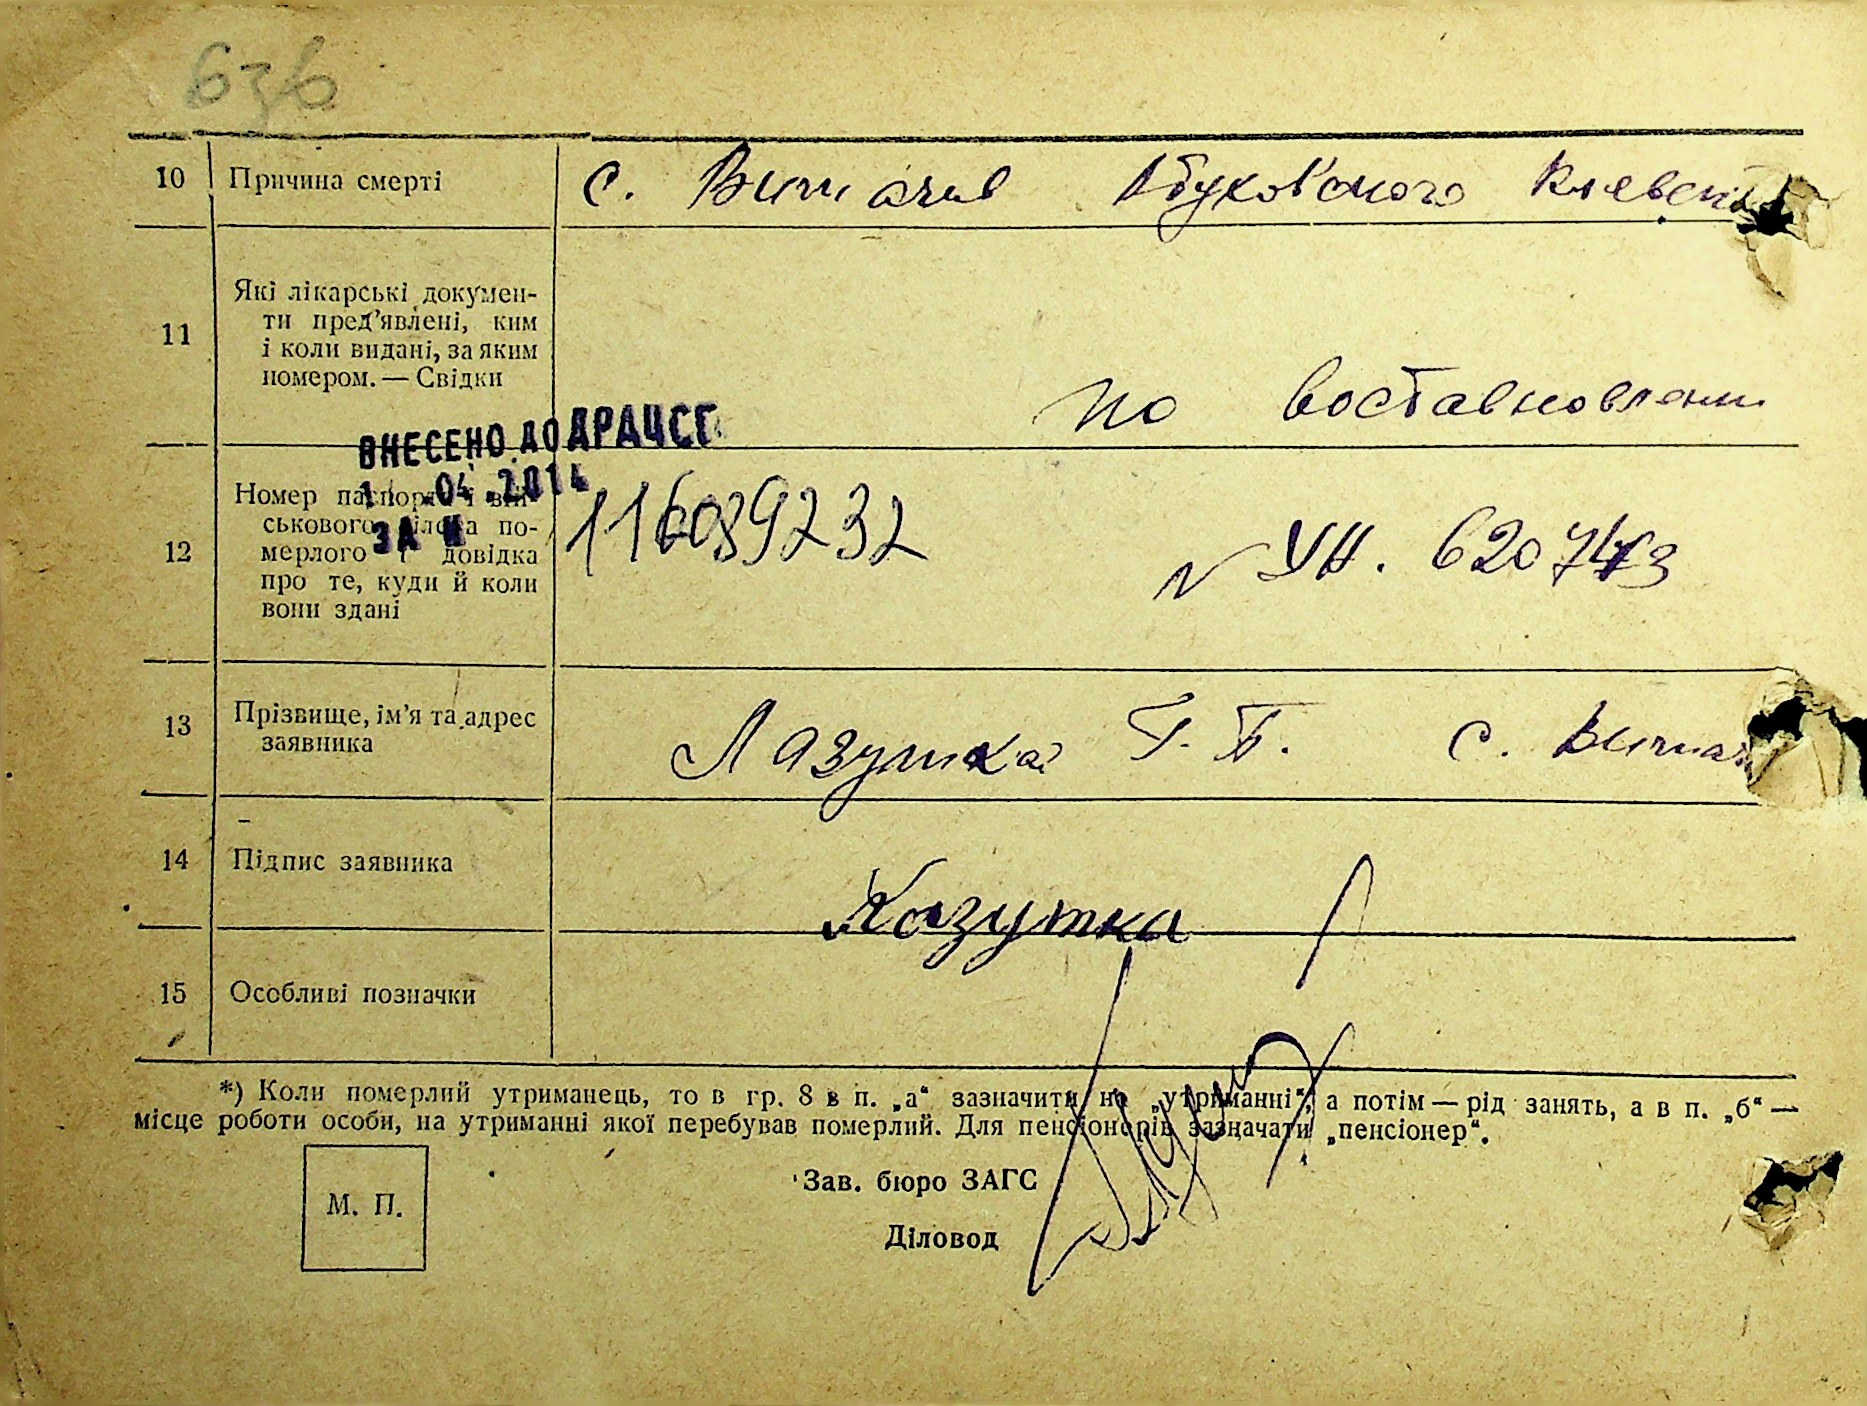 636
10 Причина смерті с. Витачів Обухов
11 Які лікарські докумен-
ти пред'явлені, ким
і коли видані, за яким
номером. — Свідки
по
ВНЕСЕНО ДО ДРАЦСГ
.04.2014
ЗА №
116089232
12 Номер паспорта і вій-
ськового білета по-
мерлого і довідка
про те, куди й коли
вони здані
УН. 620743
13 Прізвище, ім'я та адрес
заявника
Г. с.
14 Підпис заявника
Лазутка
15 Особливі позначки
*) Коли померлий утриманець, то в гр. 8 в п. „а“ зазначити на „утриманні“, а потім — рід занять, а в п. „б“ —
місце роботи особи, на утриманні якої перебував померлий. Для пенсіонерів зазначати „пенсіонер“.
М. П.
Зав. бюро ЗАГС
Діловод